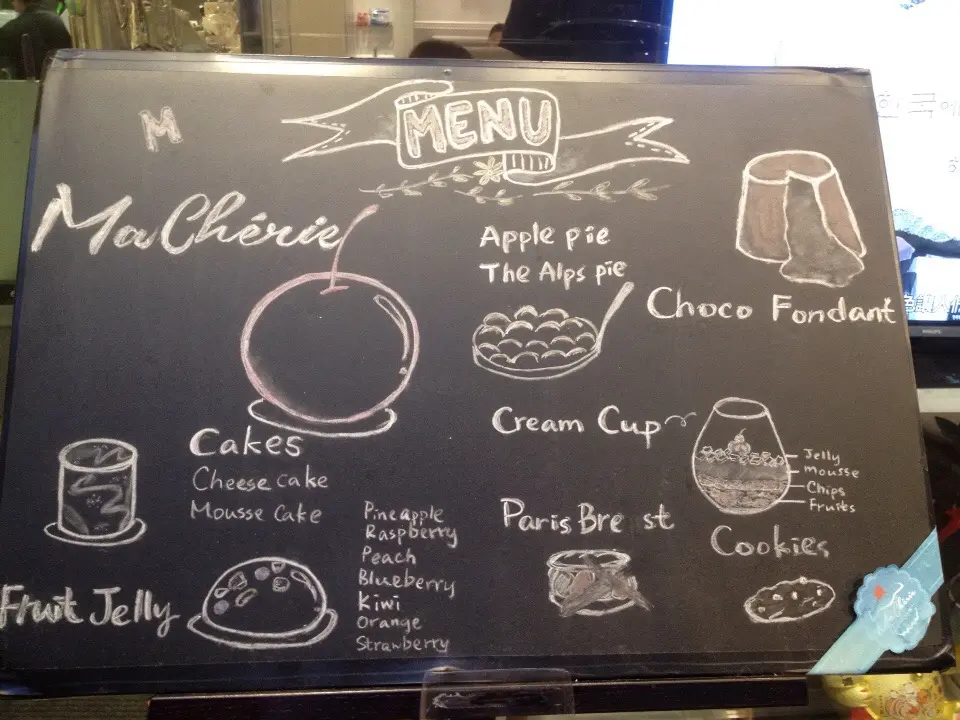 M
MENU
Ma Chérie
Apple pie
The Alps pie
Choco Fondant
Cream Cup
Jelly
Mousse
Chips
Fruits
Cakes
Cheese cake
Mousse Cake
Paris Bre st
Cookies
Fruit Jelly
Pineapple
Raspberry
Peach
Blueberry
Kiwi
Orange
Strawberry
한국에
PHILIPS